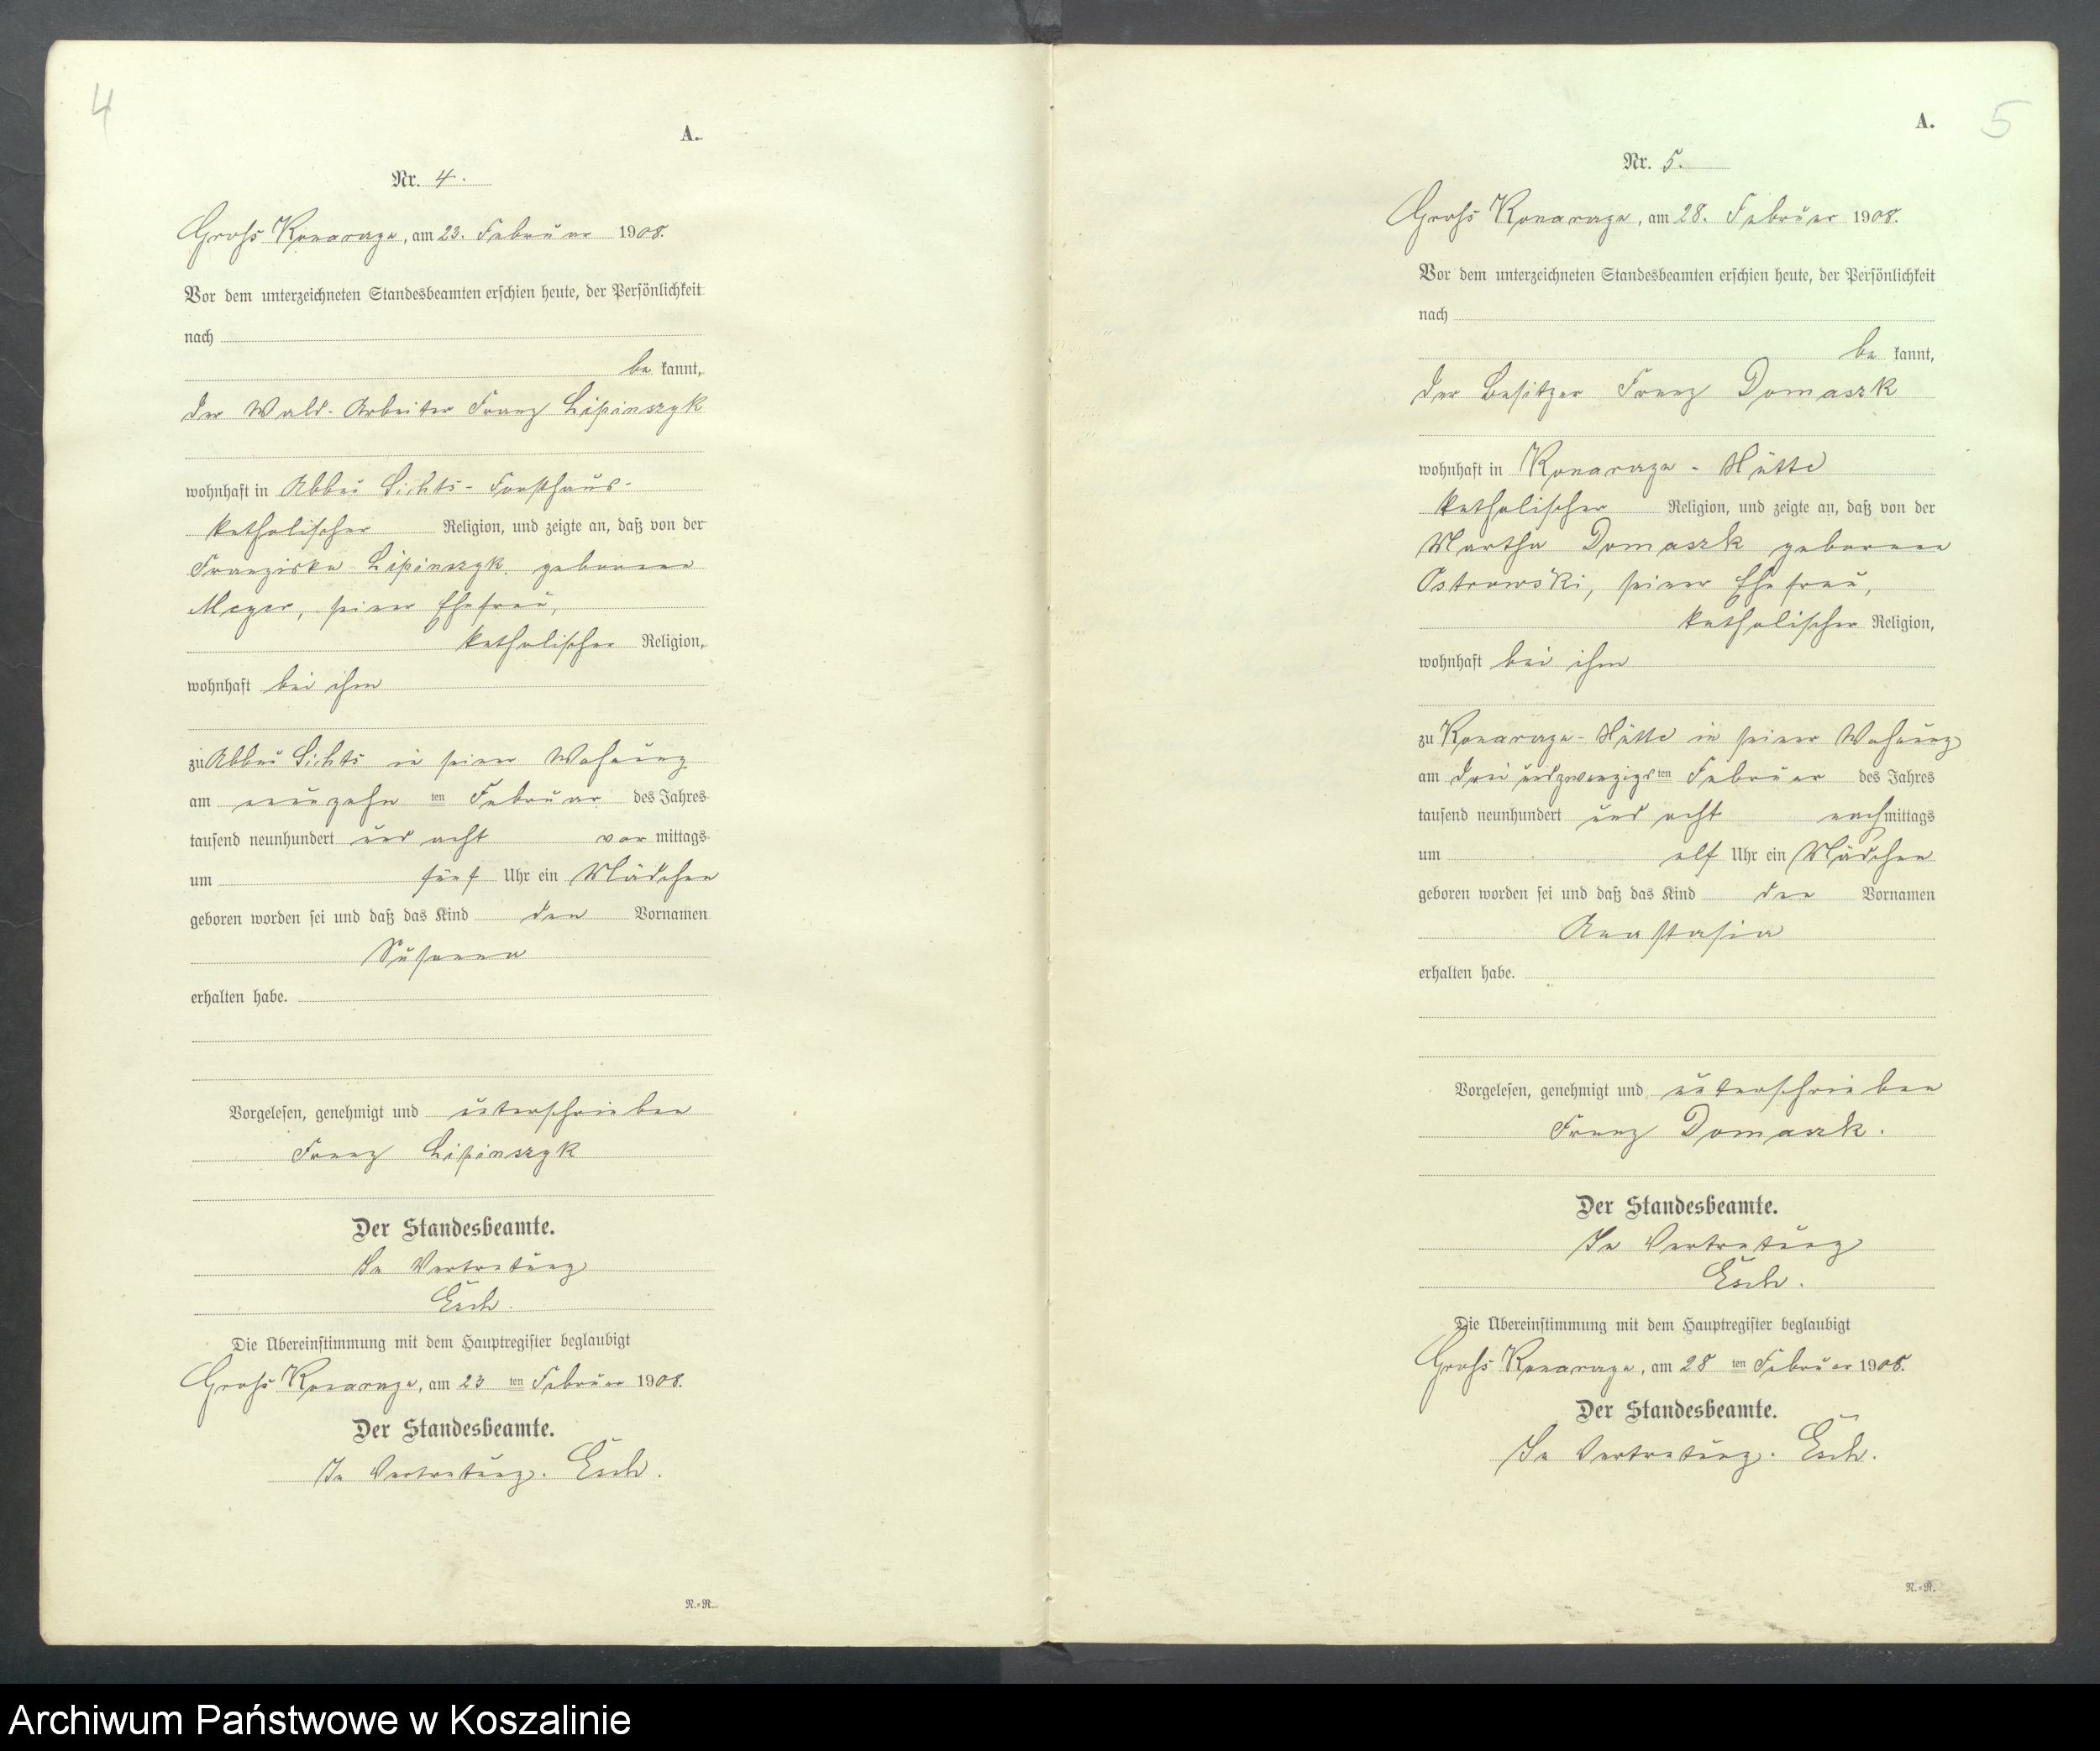 4
A.
Nr. 4.
Gross Konarczyn, am 23. Februar 1908.
Vor dem unterzeichneten Standesbeamten erschien heute, der Persönlichkeit
nach
be kannt,
der Wald-Arbeiter Franz Lipinszyk
wohnhaft in Abbau Lichts-Forsthaus-
katholischer Religion, und zeigte an, daß von der
Franziska Lipinszyk geborenen
Meyer, seiner Ehefrau,
katholischer Religion,
wohnhaft bei ihm
zu Abbau Lichts in seiner Wohnung
am neunzehn ten Februar des Jahres
tausend neunhundert und acht vor mittags
um fünf Uhr ein Mädchen
geboren worden sei und daß das Kind den Vornamen
Susanna
erhalten habe.
Vorgelesen, genehmigt und unterschrieben
Franz Lipinszyk
Der Standesbeamte.
In Vertretung
Esch.
Die Übereinstimmung mit dem Hauptregister beglaubigt
Gross Konarczyn, am 23 ten Februar 1908.
Der Standesbeamte.
In Vertretung. Esch.
N.-R.
5
A.
Nr. 5.
Gross Konarczyn, am 28. Februar 1908.
Vor dem unterzeichneten Standesbeamten erschien heute, der Persönlichkeit
nach
be kannt,
der Besitzer Franz Domaszk
wohnhaft in - Hütte
katholischer Religion, und zeigte an, daß von der
Martha Domaszk geborenen
Ostrowski, seiner Ehefrau,
katholischer Religion,
wohnhaft bei ihm
zu - Hütte in seiner Wohnung
am drei und zwanzigsten Februar des Jahres
tausend neunhundert und acht nachmittags
um elf Uhr ein Mädchen
geboren worden sei und daß das Kind den Vornamen
Anastasia
erhalten habe.
Vorgelesen, genehmigt und unterschrieben
Franz Domaszk.
Der Standesbeamte.
In Vertretung
Esch.
Die Übereinstimmung mit dem Hauptregister beglaubigt
Gross Konarczyn, am 28 ten Februar 1908.
Der Standesbeamte.
In Vertretung. Esch.
N.-R.
Archiwum Państwowe w Koszalinie